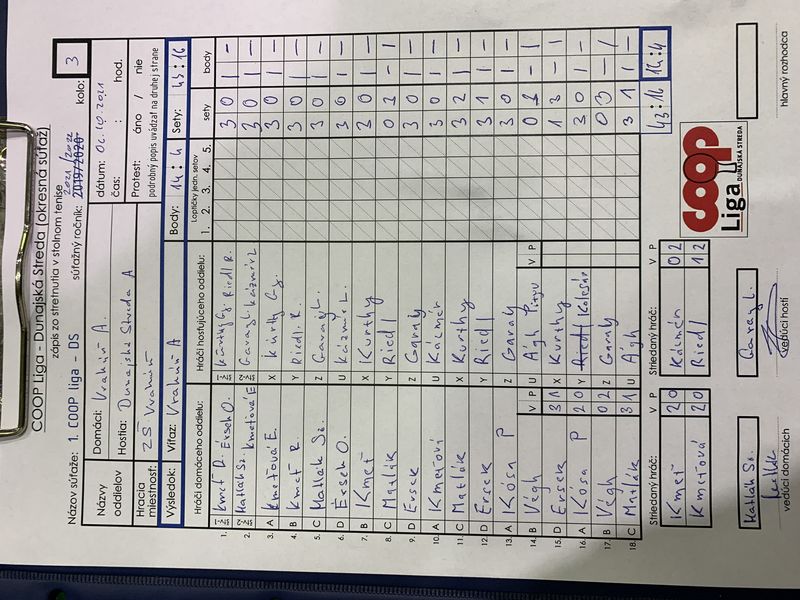 COOP Liga - Dunajská Streda (okresná súťaž)
zápis zo stretnutia v stolnom tenise
Názov súťaže: 1. COOP liga - DS súťažný ročník: 2019/2020 2021/2022 kolo: 3
Názvy oddielov
Domáci: Vrakúň A.
Hostia: Dunajská Streda A
dátum: 06.10.2021
čas: : hod.
Hracia miestnosť: ZŠ Vrakúň
Protest: áno / nie
podrobný popis uvádzať na druhej strane
Výsledok: Víťaz: Vrakúň A Body: 14 : 4 Sety: 43 : 16
Hráči domáceho oddielu: Hráči hosťujúceho oddielu: Loptičky jedn. setov sety body
1. 2. 3. 4. 5.
1. Kmeť R. Érsek O. Kürthy Gy. Riedl R. 3 0 1 –
2. Matlák Sz. Kmeťová E Garay L. Kázmér L 3 0 1 –
3. A Kmeťová E. X Kürthy Gy. 3 0 1 –
4. B Kmeť R. Y Riedl R. 3 0 1 –
5. C Matlák Sz. Z Garay L. 3 0 1 –
6. D Érsek O. U Kázmér L. 3 0 1 –
7. B Kmeť X Kürthy 3 0 1 –
8. C Matlák Y Riedl 0 3 – 1
9. D Érsek Z Garay 3 0 1 –
10. A Kmeťová U Kázmér 3 0 1 –
11. C Matlák X Kürthy 3 2 1 –
12. D Érsek Y Riedl 3 1 1 –
13. A Kósa P Z Garay 3 0 1 –
V P V P
14. B Végh U Ágh 0 3 – 1
15. D Érsek 3 1 X Kürthy 1 3 – 1
16. A Kósa P 2 0 Y Riedl Kolesár 3 0 1 –
17. B Végh 0 2 Z Garay 0 3 – 1
18. C Matlák 3 1 U Ágh 3 1 1 –
43 : 16 14 : 4
Striedaný hráč: V P Striedaný hráč: V P
Kmeť 2 0 Kázmér 0 2
Kmeťová 2 0 Riedl 1 2
COOP
Liga DUNAJSKÁ STREDA
Matlák Sz. Garay L.
vedúci domácich vedúci hostí hlavný rozhodca